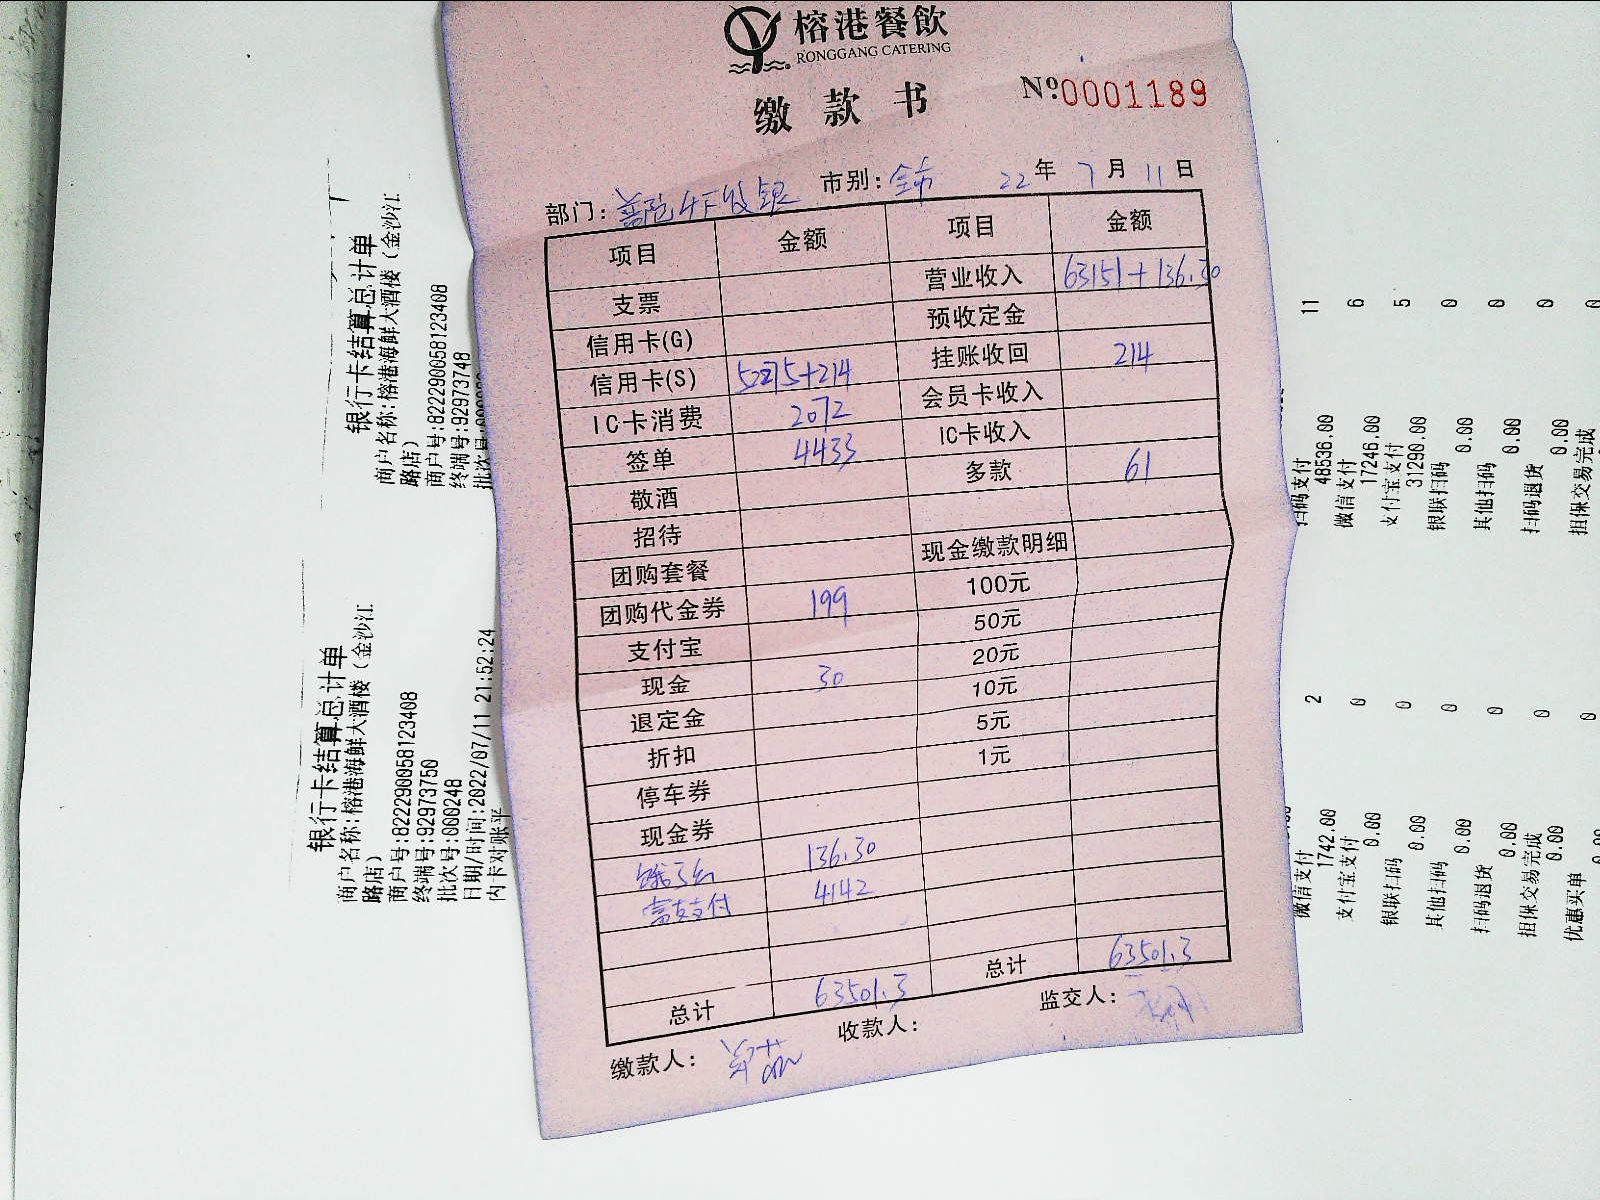 榕港餐飲
RONGGANG CATERING
缴款书
№0001189
部门：普陀店收银 市别：全市 22年7月11日
项目 金额 项目 金额
支票 营业收入 63151+136.30
信用卡(G) 预收定金
信用卡(S) 52275+214 挂账收回 214
IC卡消费 2072 会员卡收入
签单 4433 IC卡收入
敬酒 多款 61
招待
团购套餐 现金缴款明细
团购代金券 199 100元
支付宝 50元
现金 30 20元
退定金 10元
折扣 5元
停车券 1元
现金券
饿了么 136.30
富友支付 4142
总计 63501.3 总计 63501.3
缴款人： 收款人： 监交人：
银行卡结算总计单
商户名称:榕港海鲜大酒楼（金沙江
路店）
商户号:822290058123408
终端号:92973748
批次号:
银行卡结算总计单
商户名称:榕港海鲜大酒楼（金沙江
路店）
商户号:822290058123408
终端号:92973750
批次号:000248
日期/时间:2022/07/11 21:52:24
内卡对账平
扫码支付 11
48536.00
微信支付 6
17246.00
支付宝支付 5
31290.00
银联扫码 0
0.00
其他扫码 0
0.00
扫码退货 0
0.00
担保交易完成 0
微信支付 2
1742.00
支付宝支付 0
0.00
银联扫码 0
0.00
其他扫码 0
0.00
扫码退货 0
0.00
担保交易完成 0
0.00
优惠买单 0